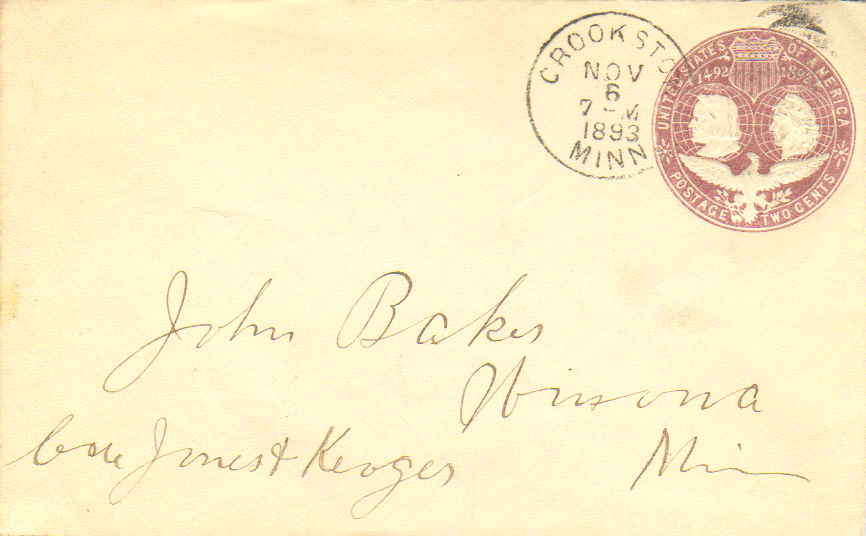 CROOKSTO
NOV
6
7 - M
1893
MINN
UNITED STATES OF AMERICA
1492 1892
POSTAGE TWO CENTS
John Baker
Winona
Care Jones & Kroger
Minn